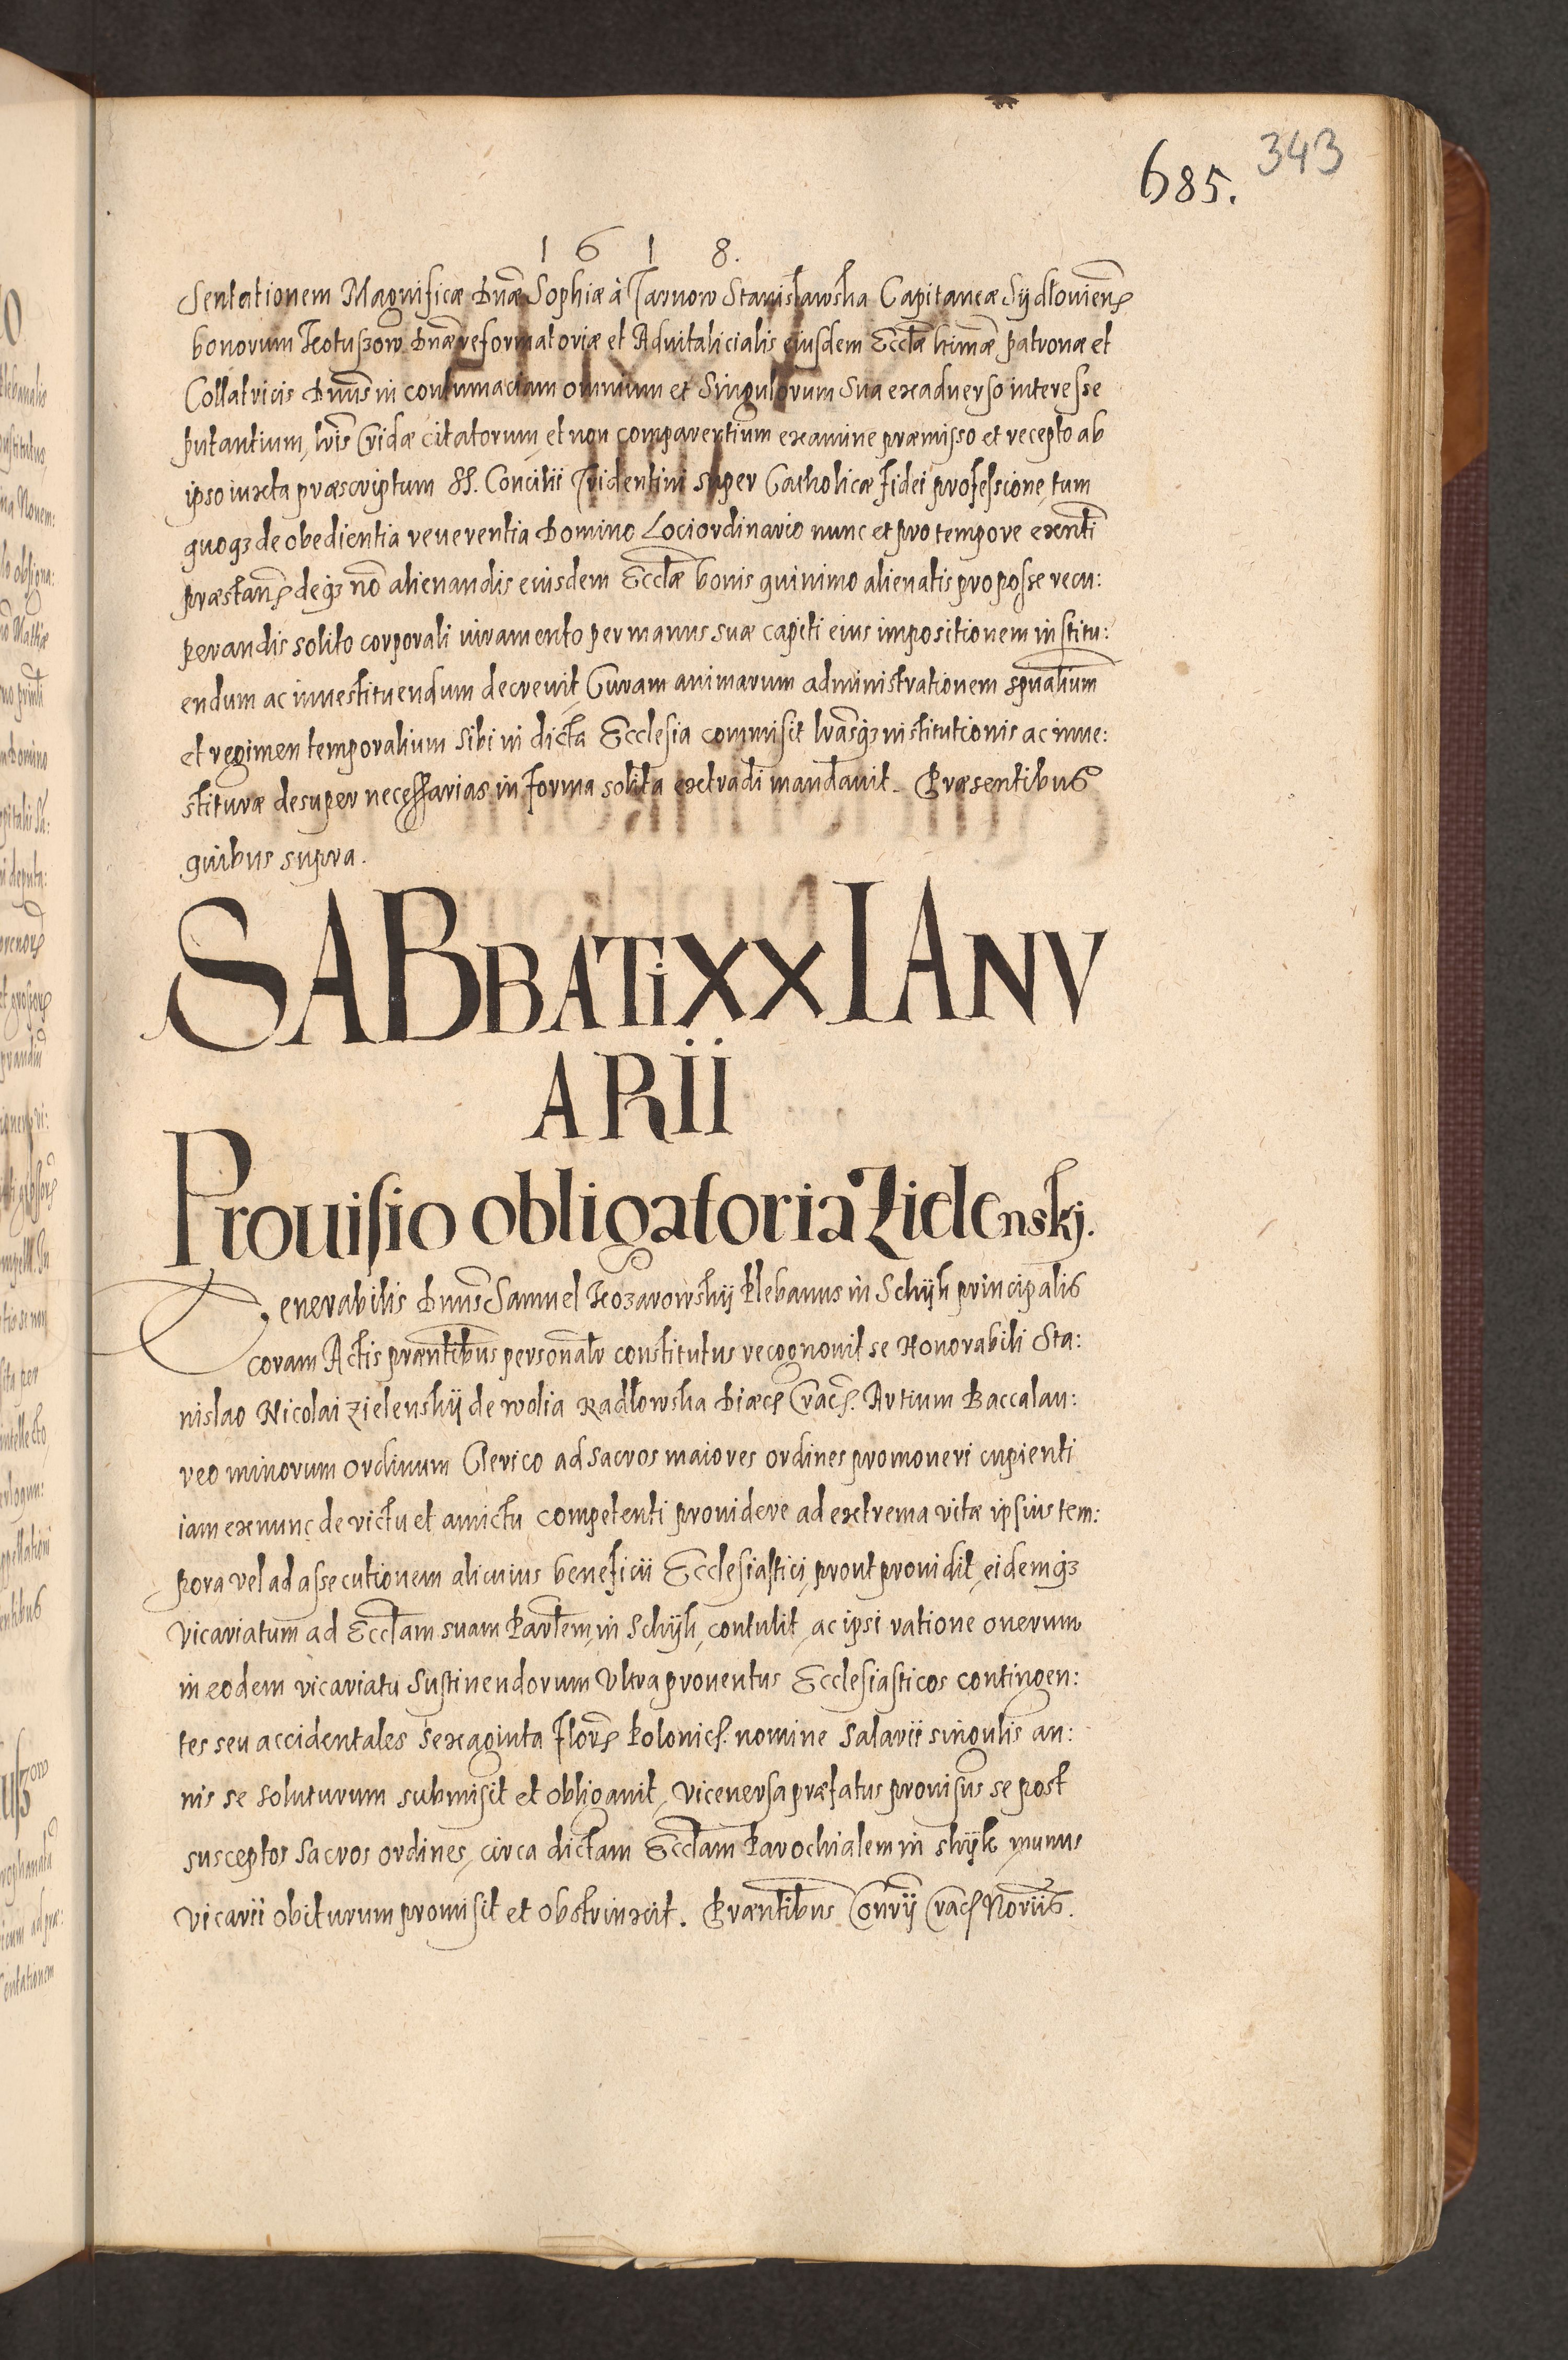 343
685.
1618.
sentationem Magnificæ Dnæ Sophiæ à Tarnow Stanisławska Capitaneæ Sydłowiens
bonorum Kotuszow Dnæ reformatoriæ et Aduitalicialis eiusdem Ecclæ ltimæ patronæ et
Collatricis Dnus in contumaciam omnium et Singulorum sua exaduerso interesse
putantium, lris Cridæ citatorum, et non comparentium examine præmisso et recepto ab
ipso iuxta præscriptum SS. Concilii Tridentini super Catholicæ fidei professione, tum
quoqз de obedientia reuerentia Domino Lociordinario nunc et pro tempore exnti
præstand deqз nō alienandis eiusdem Ecclæ bonis quinimo alienatis pro posse recu:
perandis solito corporali iuramento per manus suæ capiti eius impositionem institu:
endum ac inuestituendum decreuit, Curam animarum administrationem spualium
et regimen temporalium sibi in dicta Ecclesia commisit lrasqз institutionis ac inue:
stituræ desuper necessarias in forma solita extradi mandauit. Præsentibus
quibus supra.
SABBATI XX IANV
ARII
Prouisio obligatoria Zielenskj.
Venerabilis Dnus Samuel Kozarowskij Plebanus in Schijk principalis
coram Actis præntibus personalr constitutus recognouit se Honorabili Sta:
nislao Nicolai Zielenskij de Wolia Radłowska Diæces Crac. Artium Baccalau:
reo minorum ordinum Clerico ad sacros maiores ordines promoueri cupienti
iam ex nunc de victu et amictu competenti prouidere ad extrema vitæ ipsius tem:
pora vel ad assecutionem alicuius beneficii Ecclesiastici, prout prouidit, eidemqз
vicariatum ad Ecclam suam Parlem, in Schijk, contulit, ac ipsi ratione onerum
in eodem vicariatu sustinendorum vltra prouentus Ecclesiasticos contingen:
tes seu accidentales sexaginta flor Polonic. nomine salarii singulis an:
nis se soluturum submisit et obligauit, viceuersa præfatus prouisus se post
susceptos sacros ordines, circa dictam Ecclam Parochialem in Skijk munus
vicarii obiturum promisit et obstrinxit. Præntibus Cons̄rij Crac Noriis.